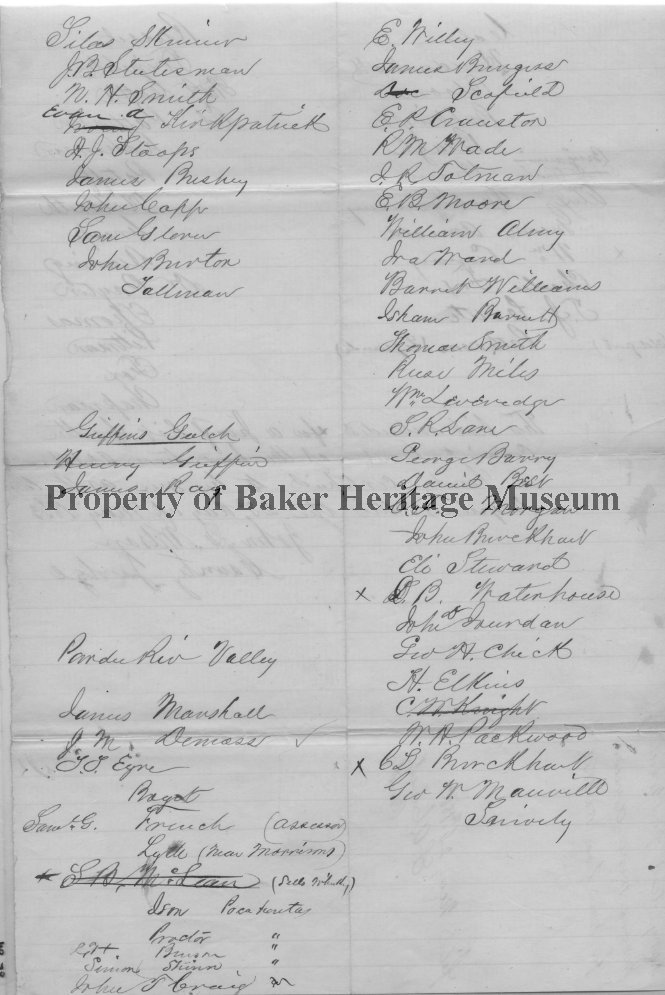 Silas Skinner
J.B. Statesman
W. H. Smith
Evan A Kirkpatrick
A.J. Stoops
James Bushey
John Capp
Sam Glover
John Burton
Tallman
Griffins Gulch
Henry Griffin
James Ray
Powder Riv Valley
James Marshall
J. M. Demoss ✓
T.T. Eyre
Saml G. French (assessor)
Lytle (near Morrisons)
S B, McLean (sells whisky)
Ison Pocahontas
Proctor "
Brown "
Simon "
John T Craig "
E. Willey
James Burgess
Scofield
E.P. Cranston
R.M. Wade
J.R. Totman
E.B. Moore
William Almy
Ira Ward
Barnet Williams
Isham Barnett
Thomas Smith
Miles
Wm Leveredge
S.R. Lane
George Barry
Daniel
Morgan
John Burckhart
Eli Steward
x D. B. Waterhouse
John Jourdan
Geo H. Chick
H. Elkins
C. W. Knight
W. H. Packwood
x C L Burckhart
Geo W. Manville
Snively
Property of Baker Heritage Museum